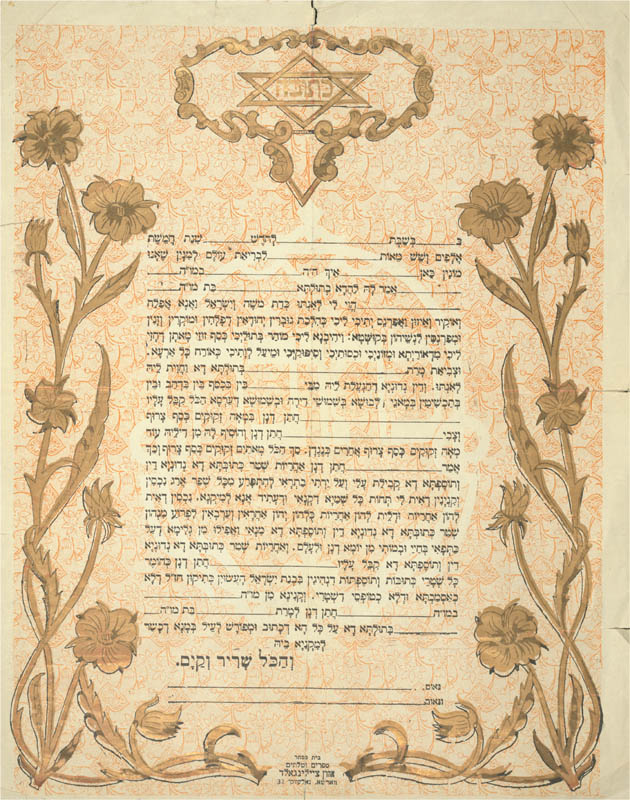 כתובה
ב____ בשבת____ לחדש____ שנת חמשת
אלפים ושש מאות____ לבריאת עולם למנין שאנו
מונין כאן____ איך ה״ה____ במו״ה____
____ אמר לה להדא בתולתא____ בת מו״ה____
____ הוי לי לאנתו כדת משה וישראל ואנא אפלח
ואוקיר ואיזון ואפרנס יתיכי ליכי כהלכת גוברין יהודאין דפלחין ומוקרין וזנין
ומפרנסין לנשיהון בקושטא: ויהיבנא ליכי מוהר בתוליכי כסף זוזי מאתן דחזי
ליכי מדאורייתא ומזוניכי וכסותיכי וסיפוקיכי ומיעל לותיכי כאורח כל ארעא.
וצביאת מרת____ בתולתא דא והוית ליה
לאנתו. ודין נדוניא דהנעלת ליה מבי____ בין בכסף בין בדהב ובין
בתכשיטין במאני דלבושא בשמושי דירה ובשמושא דערסא הכל קבל עליו
____ חתן דנן במאה זקוקים כסף צרוף
וצבי____ חתן דנן והוסיף לה מן דיליה עוד
מאה זקוקים כסף צרוף אחרים כנגדן. סך הכל מאתים זקוקים כסף צרוף וכך
אמר____ חתן דנן אחריות שטר כתובתא דא נדוניא דין
ותוספתא דא קבילת עלי ועל ירתי בתראי להתפרע מכל שפר ארג נכסין
וקנינין דאית לי תחות כל שמיא דקנאי ודעתיד אנא למיקנא. נכסין דאית
להון אחריות ודלית להון אחריות כלהון יהון אחראין וערבאין לפרוע מנהון
שטר כתובתא דא נדוניא דין ותוספתא דא מנאי ואפילו מן גלימא דעל
כתפאי בחיי ובמותי מן יומא דנן ולעלם. ואחריות שטר כתובתא דא נדוניא
דין ותוספתא דא קבל עליו____ חתן דנן כחומר
כל שטרי כתובות ותוספתות דנהיגין בבנת ישראל העשוין כתיקון חז״ל דלא
כאסמכתא ודלא כטופסי דשטרי. וקנינא מן מו״ה____
במו״ה____ חתן דנן למרת____ בת מו״ה____
____ בתולתא דא על כל הא דכתוב ומפורש לעיל במנא דכשר
למקניא ביה
והכל שריר וקים.
נאום____
ונאום____
בית מסחר
ספרים וטלתים
אהרן ציילינגאלד
ווארשא, נאלעווקי 31